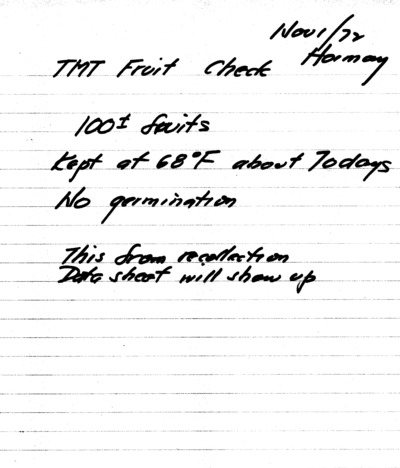 Nov 1/72
Hormay
TMT Fruit Check
100± fruits
Kept at 68°F about 70 days
No germination
This from recollection
Data sheet will show up